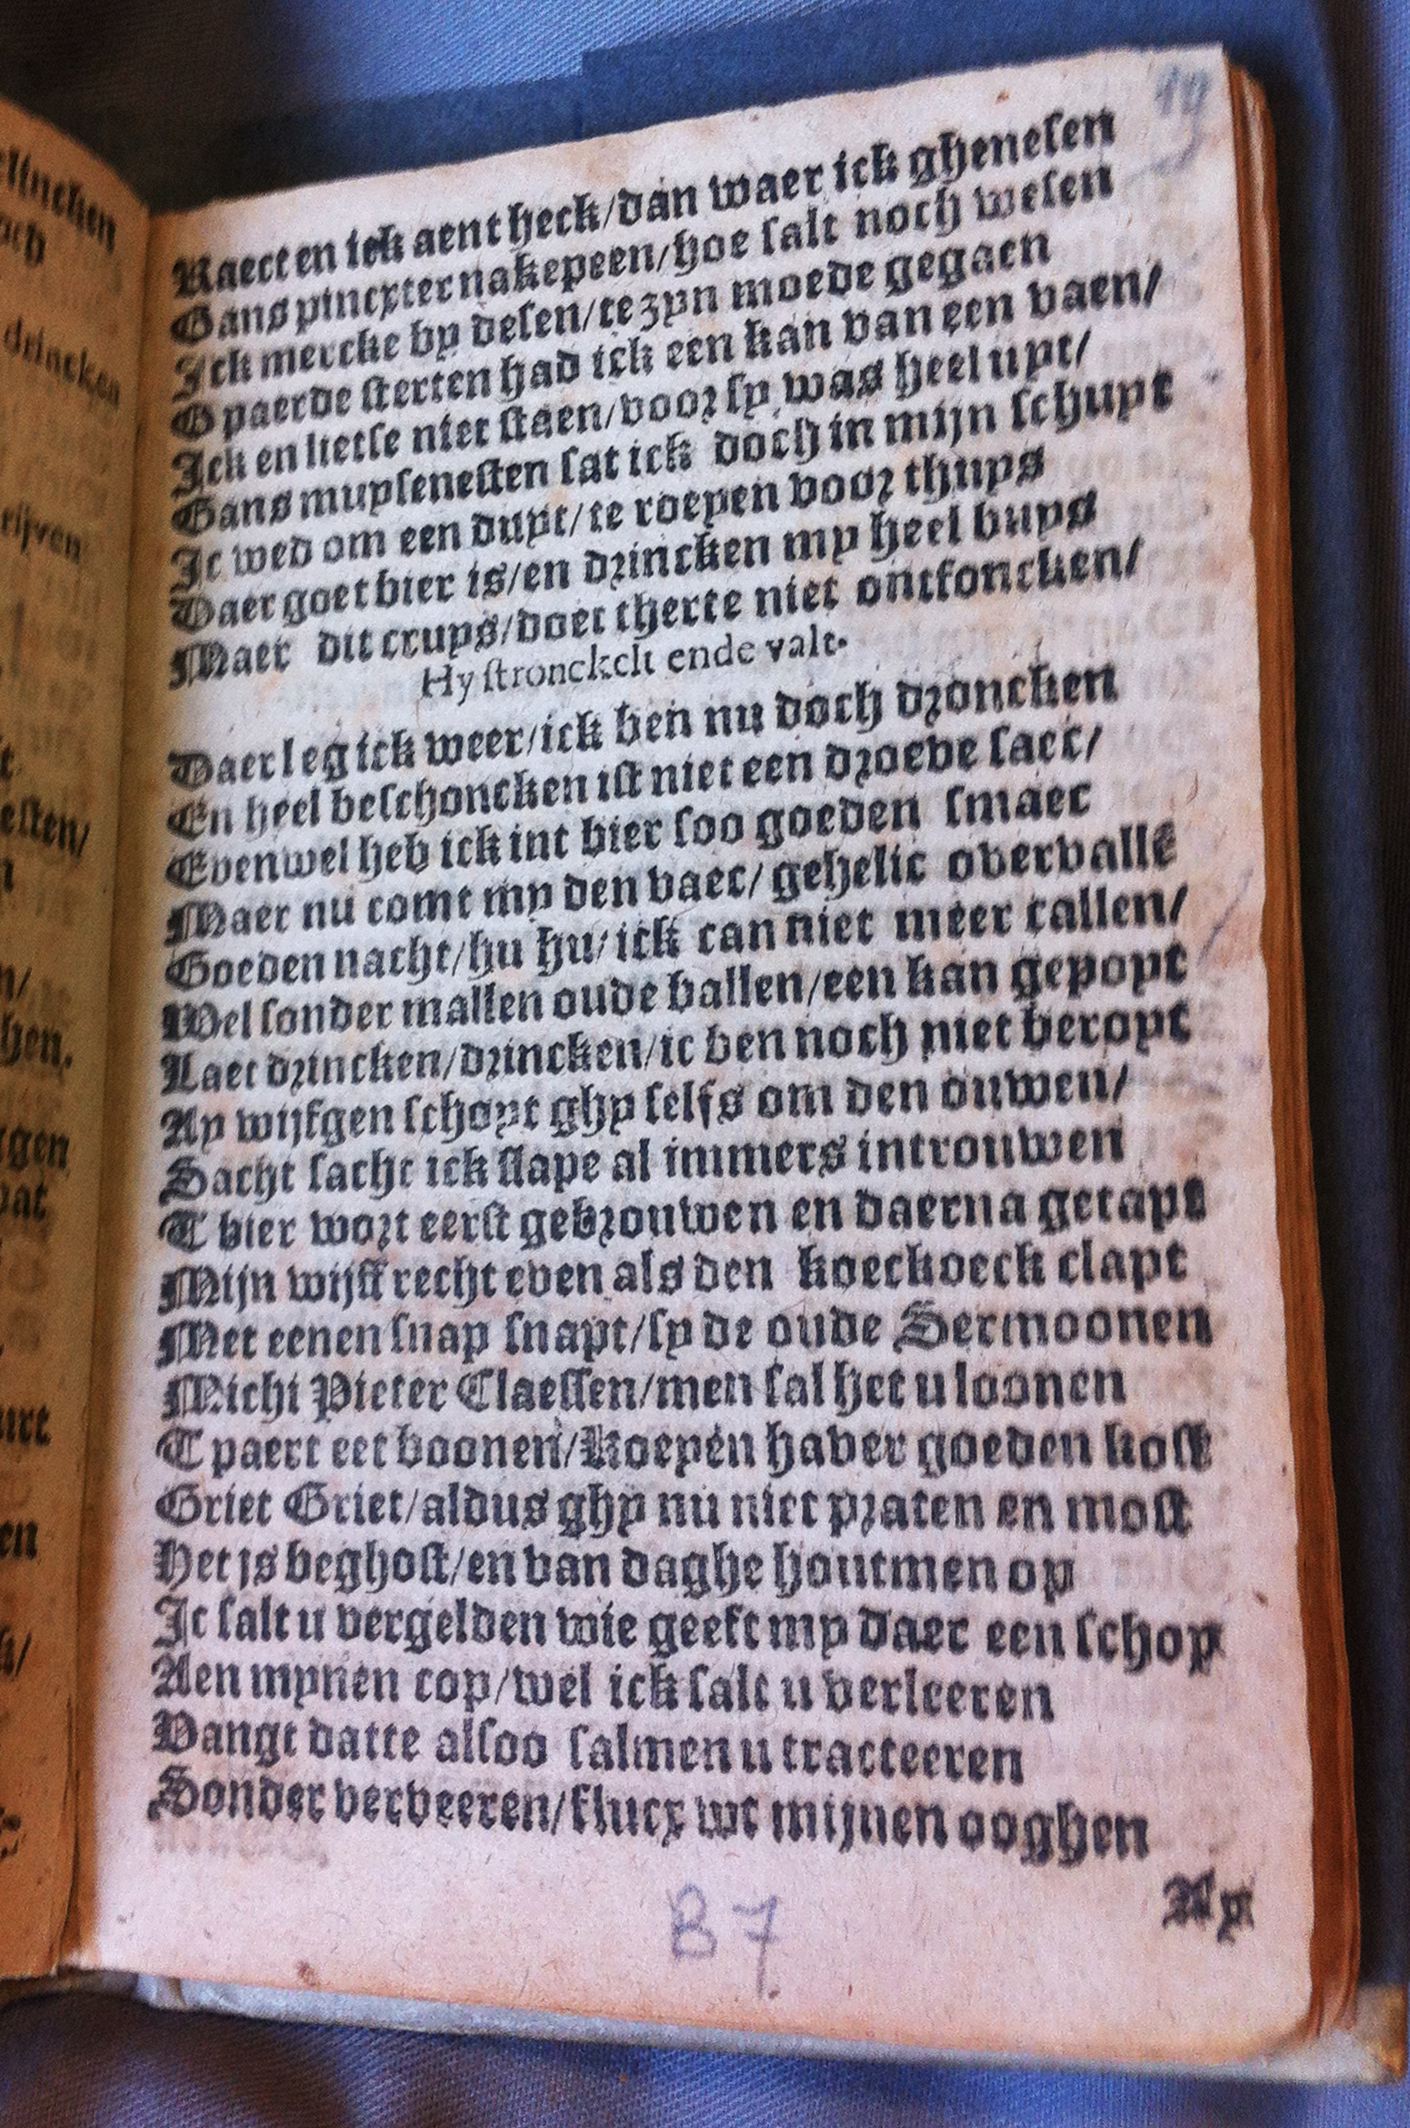 19
Raect en ick aent heck/dan waer ick ghenesen
Gans pincxter nakepeen/hoe salt noch wesen
Ick mercke by desen/te zyn moede gegaen
O paerde sterten had ick een kan van een vaen/
Ick en lietse niet staen/voor sy was heel uyt/
Gans muysenesten sat ick doch in mijn schuyt
Ic wed om een duyt/te roepen voor thuys
Daer goet bier is/en drincken my heel buys
Maer dit cruys/doet therte niet ontfoncken/
Hy stronckelt ende valt.
Daer leg ick weer/ick ben nu doch droncken
En heel beschoncken ist niet een droeve saec/
Evenwel heb ick int bier soo goeden smaec
Maer nu comt my den vaec/gehelic overvallē
Goeden nacht/hu hu/ick can niet meer callen/
Wel sonder mallen oude ballen/een kan gepoyt
Laet drincken/drincken/ic ben noch niet beroyt
Ay wijfgen schoyt ghy selfs om den ouwen/
Sacht sacht ick slape al immers introuwen
T bier wort eerst gebrouwen en daerna getapt
Mijn wijff recht even als den koeckoeck clapt
Met eenen snap snapt/sy de oude Sermoonen
Michi Pieter Claessen/men sal het u loonen
T paert eet boonen/Koeyen haver goeden kost
Griet Griet/aldus ghy nu niet praten en most
Het is beghost/en van daghe houtmen op
Ic salt u vergelden wie geeft my daer een schop
Aen mynen cop/wel ick salt u verleeren
Vangt datte alsoo salmen u tracteeren
Sonder verveeren/flucx wt mijnen ooghen
Ay
B 7